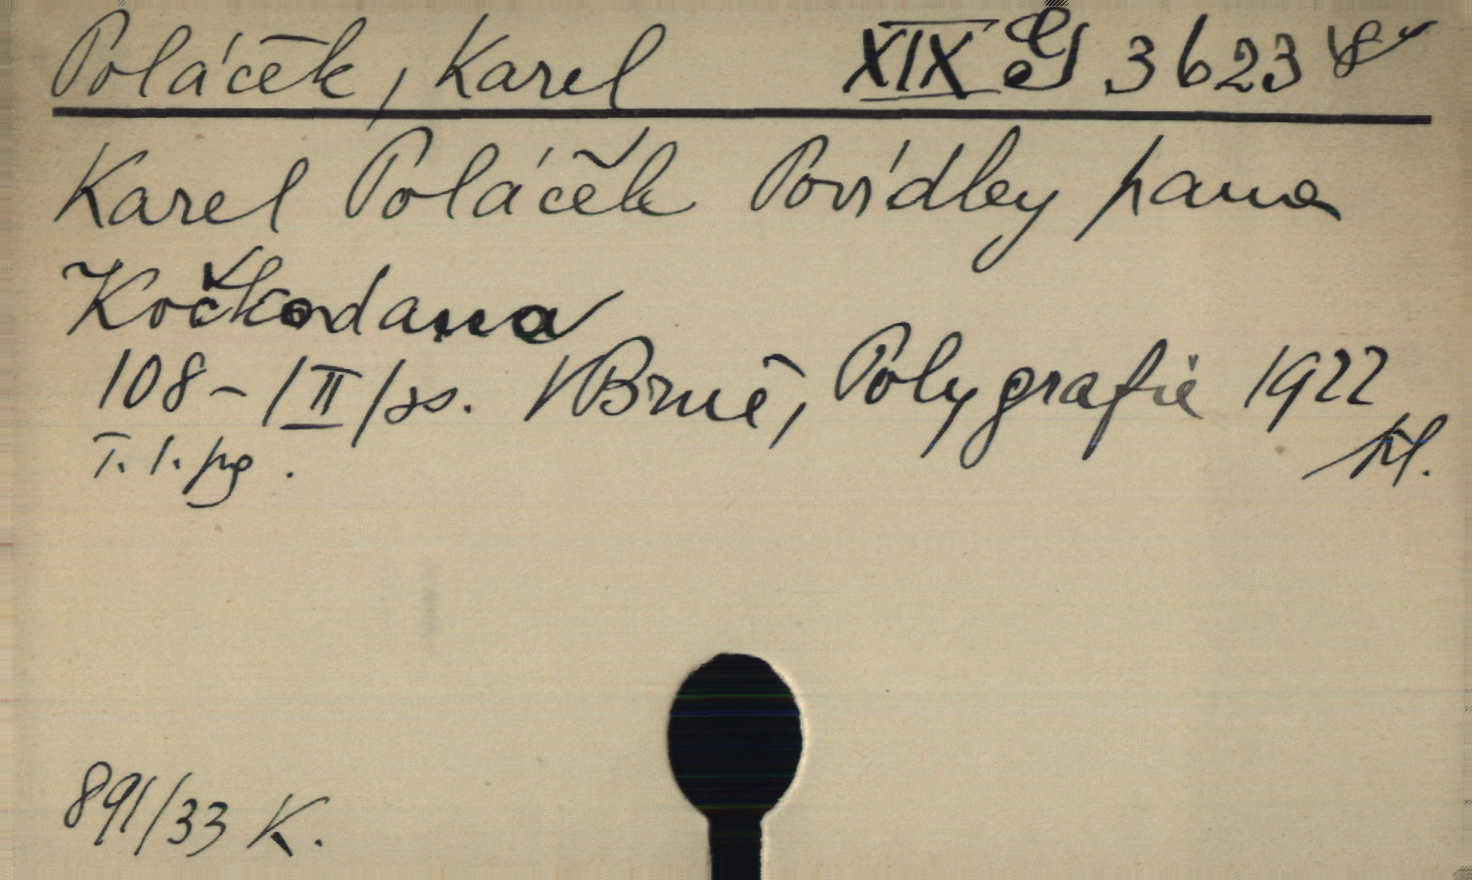 Poláček, Karel XIX G 3623
Karel Poláček Povídky pana
Kočkodana
108-/II/ss. V Brně, Polygrafie 1922
T. 1. pg.
Kl.
891/33 K.